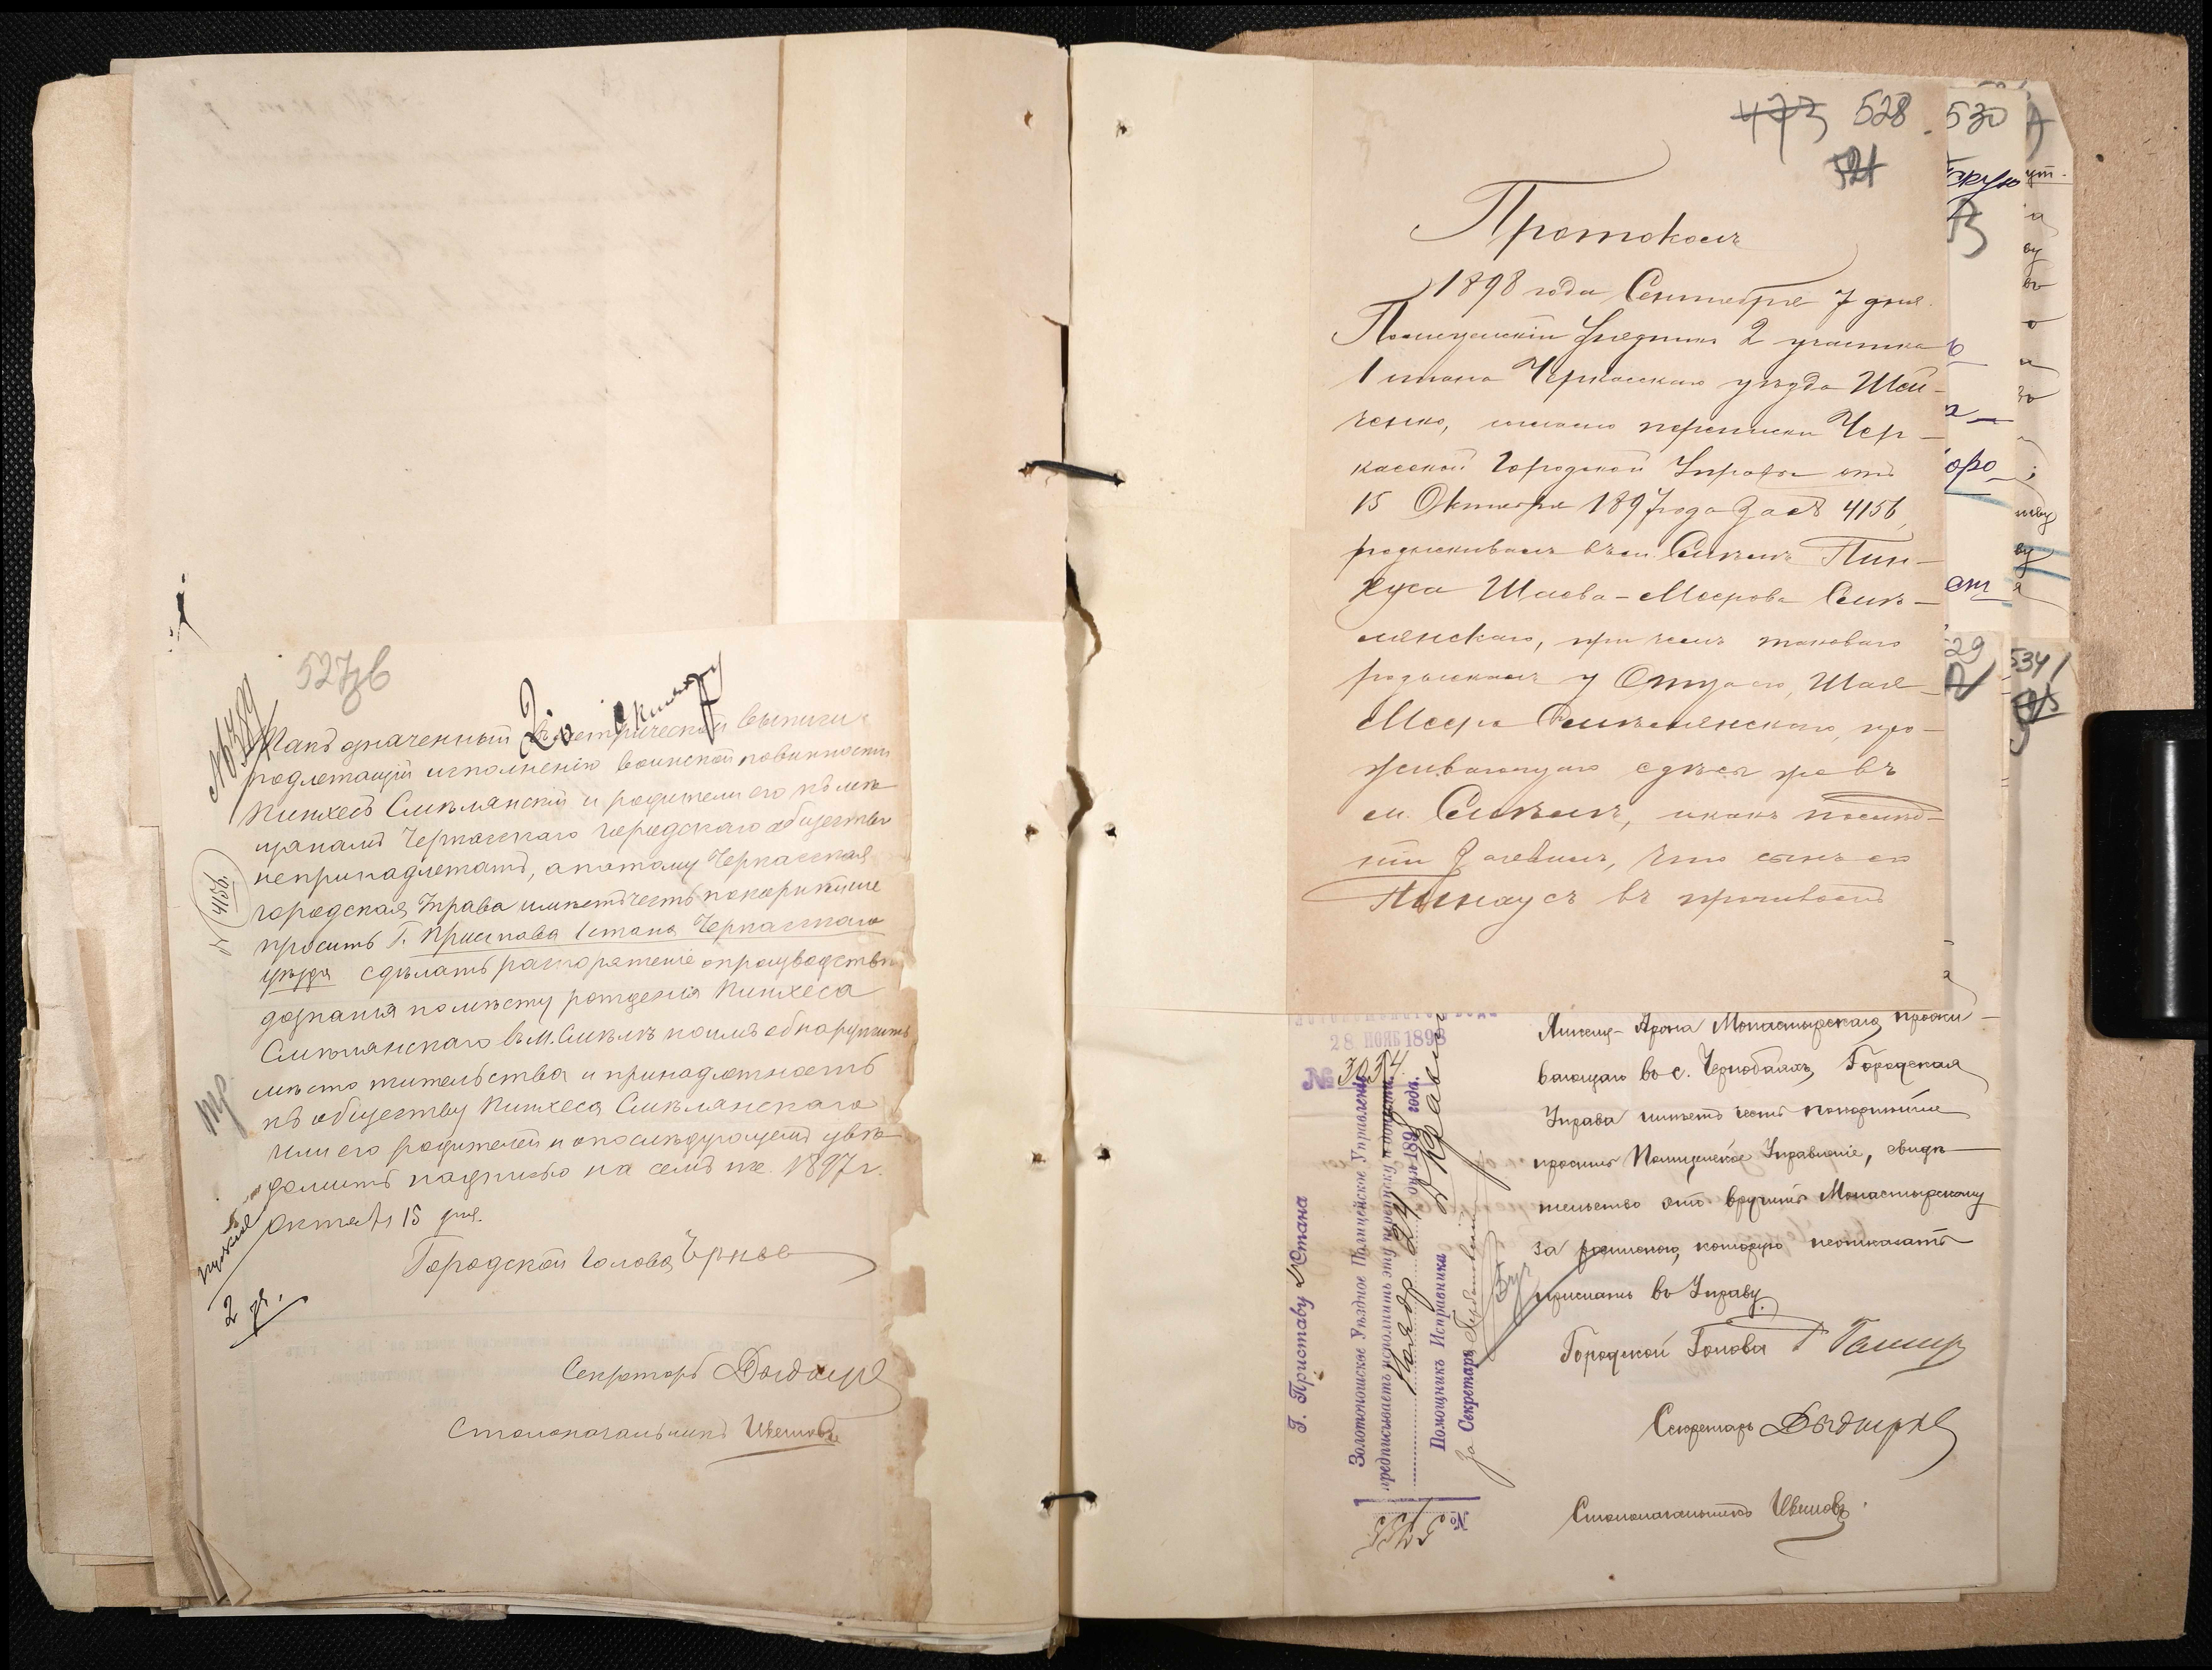 527 зв
№ 4156
Какъ означенный въ метрической выписи
подлежащій исполненію воинской повинности
Пинхесъ Смѣлянскій и родители его къ мѣ
щанамъ Черкасскаго городского общества
непринадлежатъ, а потому Черкасская
городская Управа имѣетъ честь покорнѣйше
просить Г. Пристава 1 стана Черкасскаго
уѣзда сдѣлать распоряженіе о производствѣ
дознанія по мѣсту рожденія Пинхеса
Смѣлянскаго въ м. Смѣлѣ коимъ обнаружить
мѣсто жительства и принадлежность
къ обществу Пинхеса Смѣлянскаго
или его родителей и о послѣдующемъ увѣ
домить надписью на семъ же. 1897 г.
Октября 15 дня.
Городской Голова
Секретарь
Столоначальникъ Ивановъ
473 528
521
Протоколъ
1898 года Сентября 7 дня
Полицейскій Урядникъ 2 участка
1 стана Черкасскаго уѣзда Шей-
ченко, согласно переписки Чер-
касской Городской Управы отъ
15 Октября 1897 года за № 4156,
розыскивалъ въ м. Смѣлѣ Пин-
хуса Шаева-Меерова Смѣ-
лянскаго, при чемъ таковаго
розыскалъ у Отца его, Шая-
Меера Смѣлянскаго, про-
живающаго здѣсь же въ
м. Смѣлѣ, и какъ послѣд-
ній заявилъ, что сынъ его
Пинхусъ въ призывалъ
530
529
534
28 НОЯБ 1898
№ 3034.
Г. Приставу 2 Стана
Золотоношское Уѣздное Полицейское Управленіе
предписываетъ исполнить эту переписку и донести.
Ноября 24 дня 1898 года.
Помощникъ Исправника
За Секретаря
№
Арона Монастырскаго, прожи-
вающаго въ с. Чернобаяхъ, Городская
Управа имѣетъ честь покорнѣйше
просить Полицейское Управленіе, свидѣ-
тельство это вручить Монастырскому
за росписко, которую неотказать
прислать въ Управу.
Городской Голова
Секретарь
Столоначальникъ Ивановъ